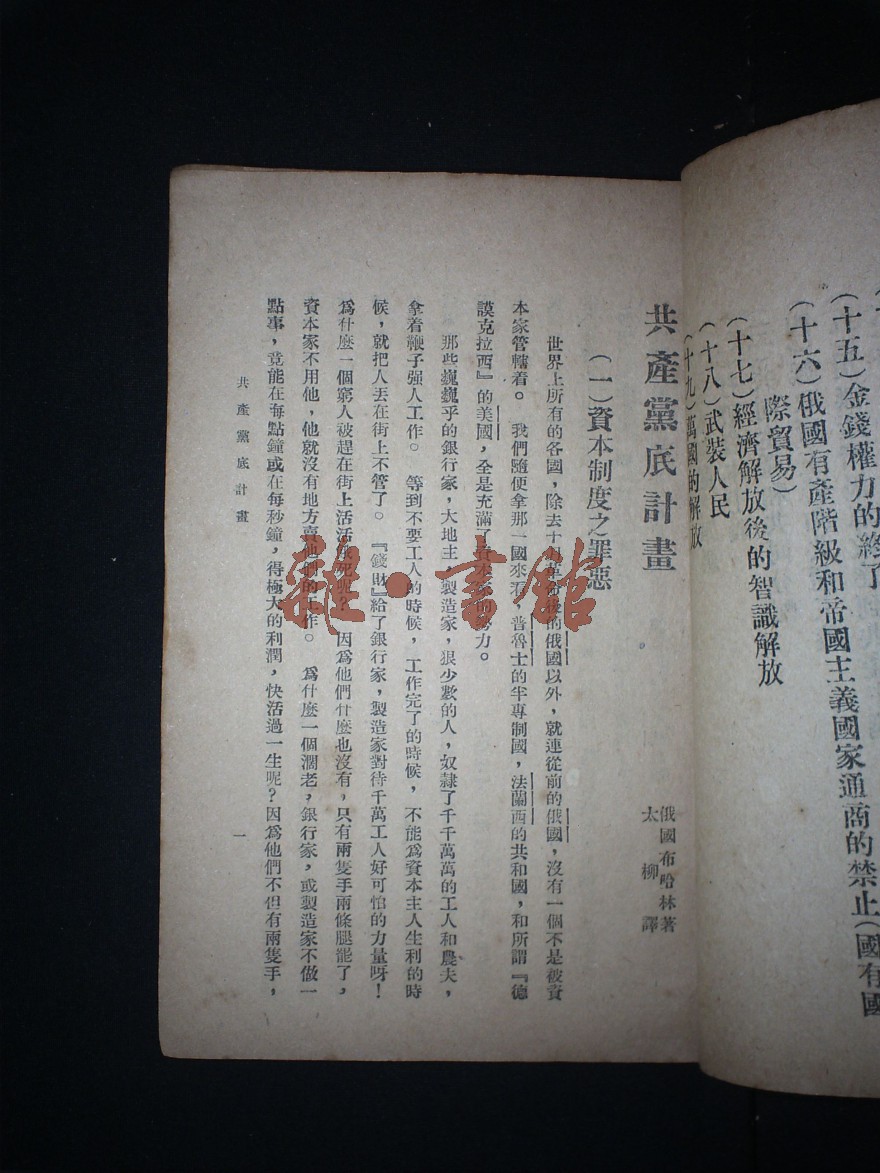 （十五）金錢權力的終了
（十六）俄國有產階級和帝國主義國家通商的禁止（國有國
際貿易）
（十七）經濟解放後的智識解放
（十八）武裝人民
（十九）萬國的解放
共產黨底計畫
俄國布哈林著
太柳譯
（一）資本制度之罪惡
世界上所有的各國，除去十月革命後的俄國以外，就連從前的俄國，沒有一個不是被資
本家管轄着。我們隨便拿那一國來看，普魯士的半專制國，法蘭西的共和國，和所謂『德
謨克拉西』的美國，全是充滿了資本家的勢力。
那些巍巍乎的銀行家，大地主，製造家，狠少數的人，奴隸了千千萬萬的工人和農夫，
拿着鞭子强人工作。等到不要工人的時候，工作完了的時候，不能爲資本主人生利的時
候，就把人丟在街上不管了。『錢財』給了銀行家，製造家對待千萬工人好可怕的力量呀！
爲什麼一個窮人被趕在街上活活死呢？因爲他們什麼也沒有，只有兩隻手兩條腿罷了，
資本家不用他，他就沒有地方賣他們的工作。爲什麼一個濶老，銀行家，或製造家不做一
點事，竟能在每點鐘或在每秒鐘，得極大的利潤，快活過一生呢？因爲他們不但有兩隻手，
共產黨底計畫
一
雜·書館